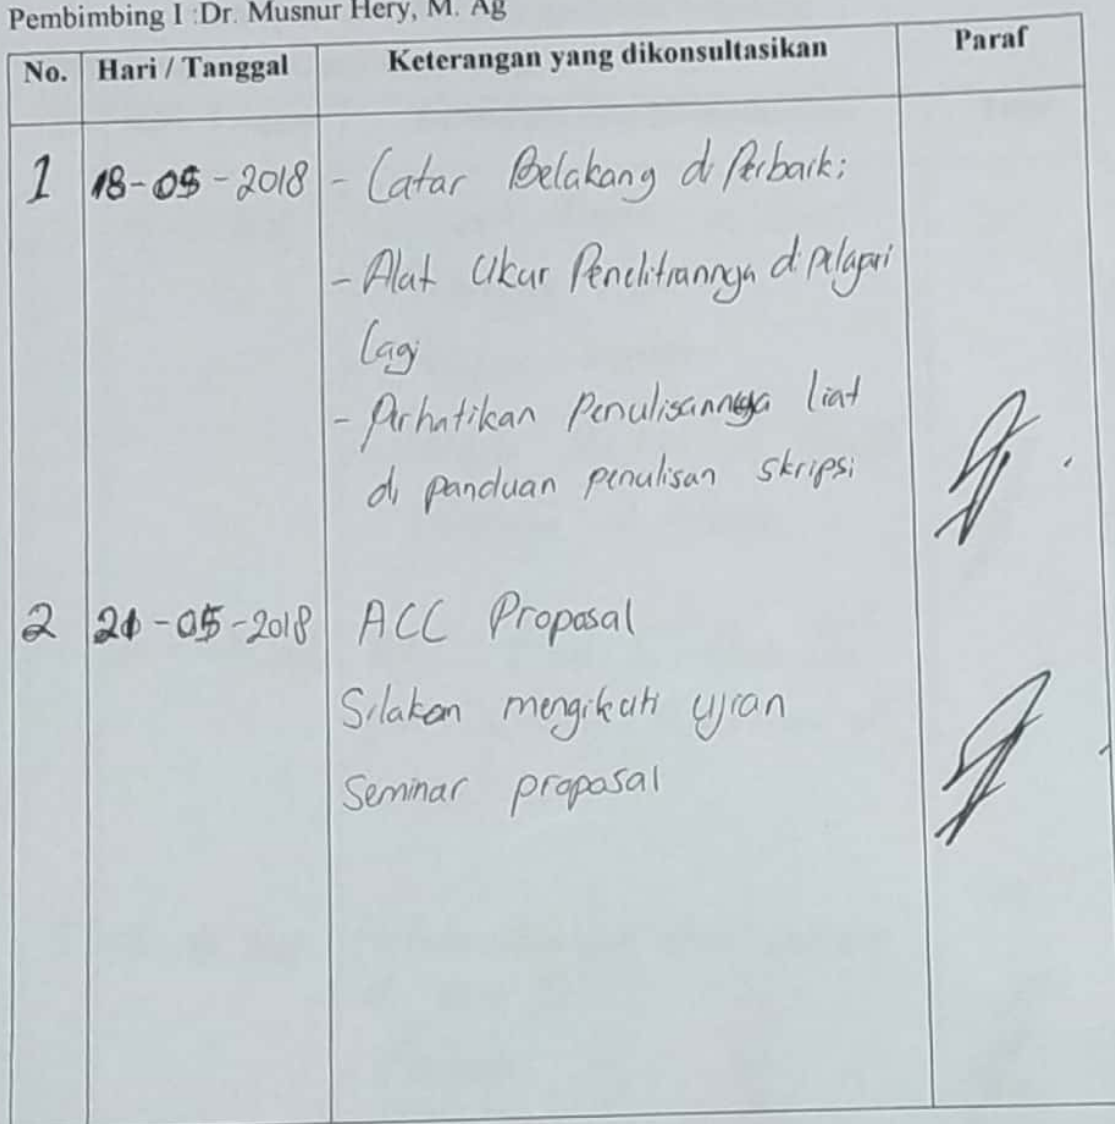 Pembimbing I :Dr. Musnur Hery, M. Ag
No. Hari / Tanggal Keterangan yang dikonsultasikan Paraf
1 18-05-2018 - Latar Belakang di Perbaiki
- Alat Ukur Penelitiannya di pelajari
lagi
- Perhatikan Penulisannya liat
di panduan penulisan skripsi
2 21-05-2018 ACC Proposal
Silakan mengikuti ujian
Seminar proposal